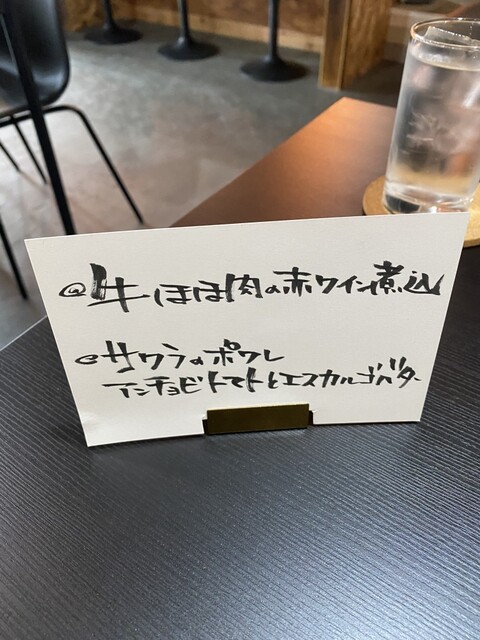 @牛ほほ肉の赤ワイン煮込
@サワラのポワレ
アンチョビトマトとエスカルゴバター